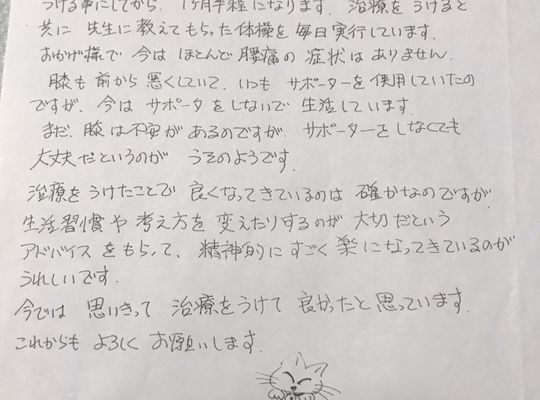 うける事にしてから、1ヶ月半程になります。治療をうけると
共に 先生に教えてもらった体操を毎日実行しています。
おかげ様で 今は ほとんど 腰痛の 症状は ありません.
膝も 前から 悪くしていて、いつも サポーターを 使用していたの
ですが、今は サポータをしないで 生活しています.
まだ、膝は不安が あるのですが、サポーターをしなくても
大丈夫だというのが うそのようです.
治療をうけたことで 良くなってきているのは 確かなのですが
生活習慣や考え方を 変えたりするのが 大切だという
アドバイスをもらって、精神的にすごく 楽になってきているのが
うれしいです.
今では 思いきって 治療をうけて 良かったと思っています.
これからも よろしく お願いします.